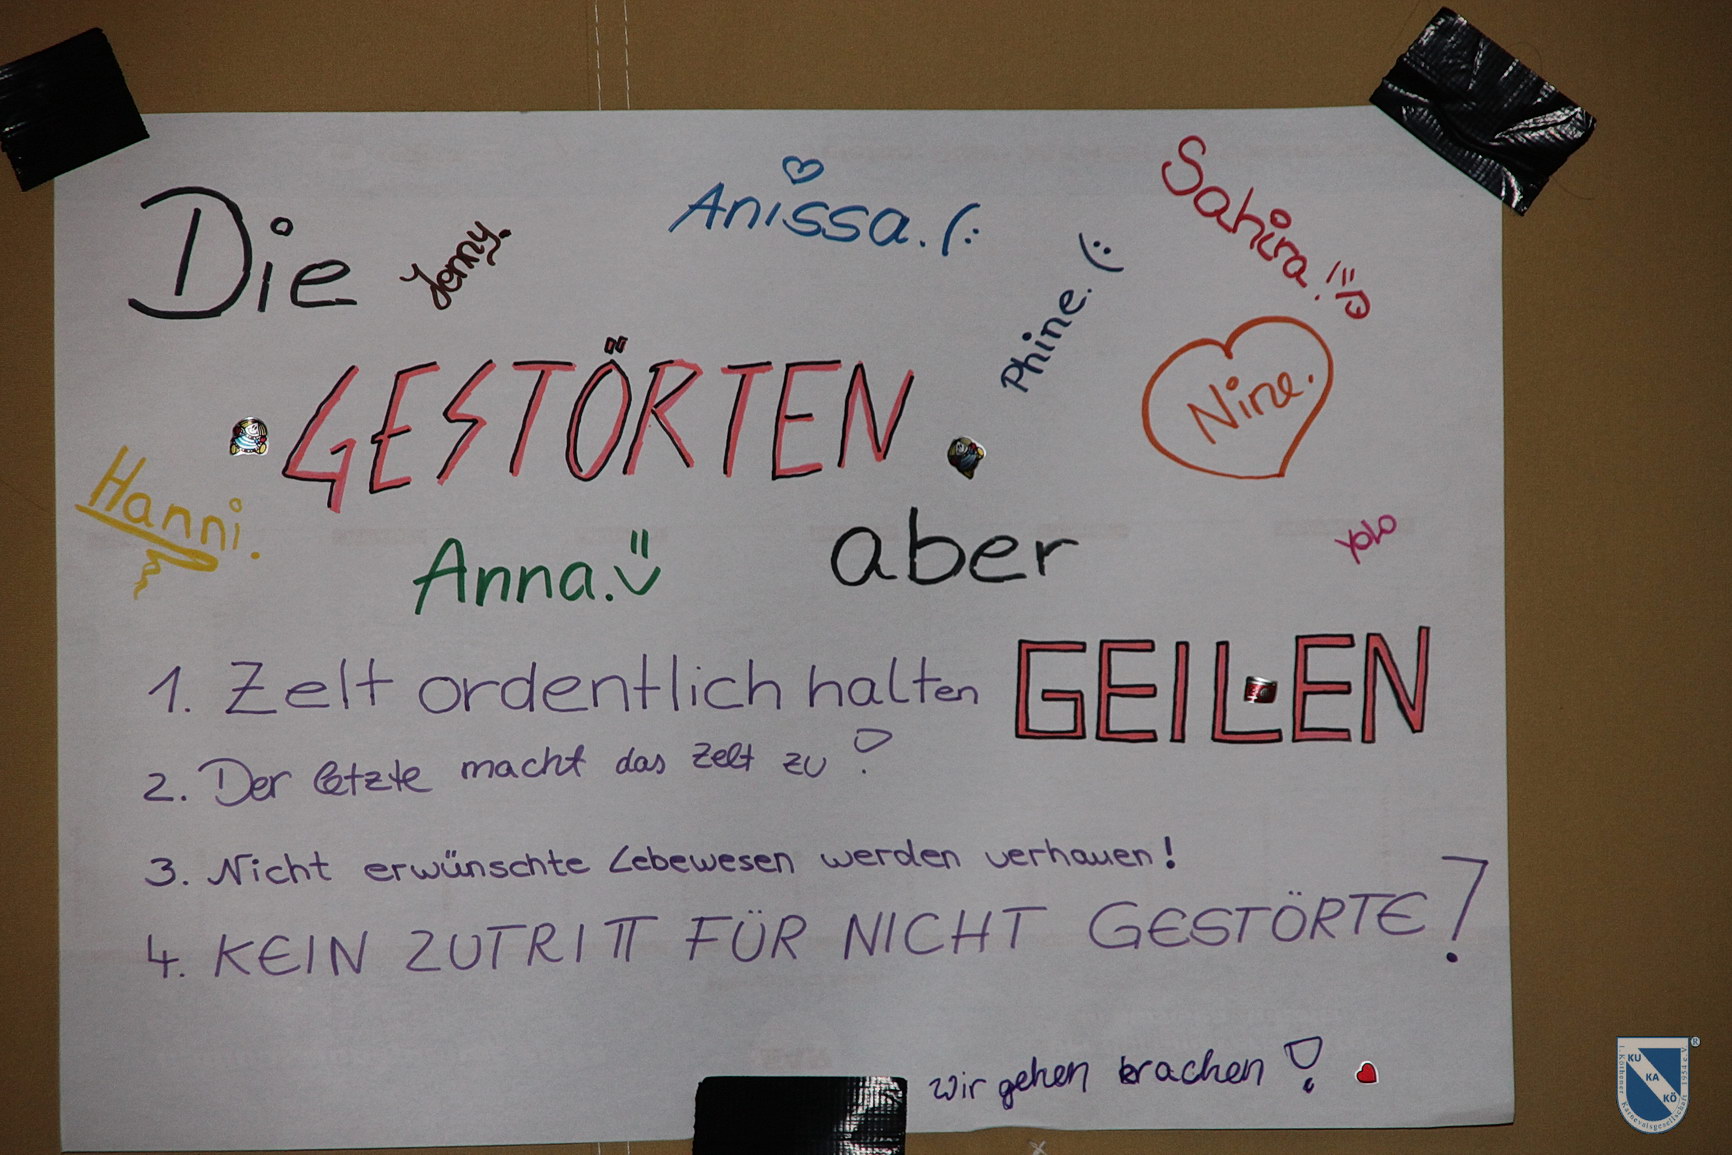 Die
Jenny.
Anissa. (:
Sahira! =D
Phine. (:
GESTÖRTEN
Nine.
Hanni.
Anna. =)
aber
YOLO
GEILEN
1. Zelt ordentlich halten
2. Der letzte macht das Zelt zu!
3. Nicht erwünschte Lebewesen werden verhauen!
4. KEIN ZUTRITT FÜR NICHT GESTÖRTE!
wir gehen krachen!
KU
KA
KÖ
1. Köthener Karnevalsgesellschaft 1954 e.V.
®